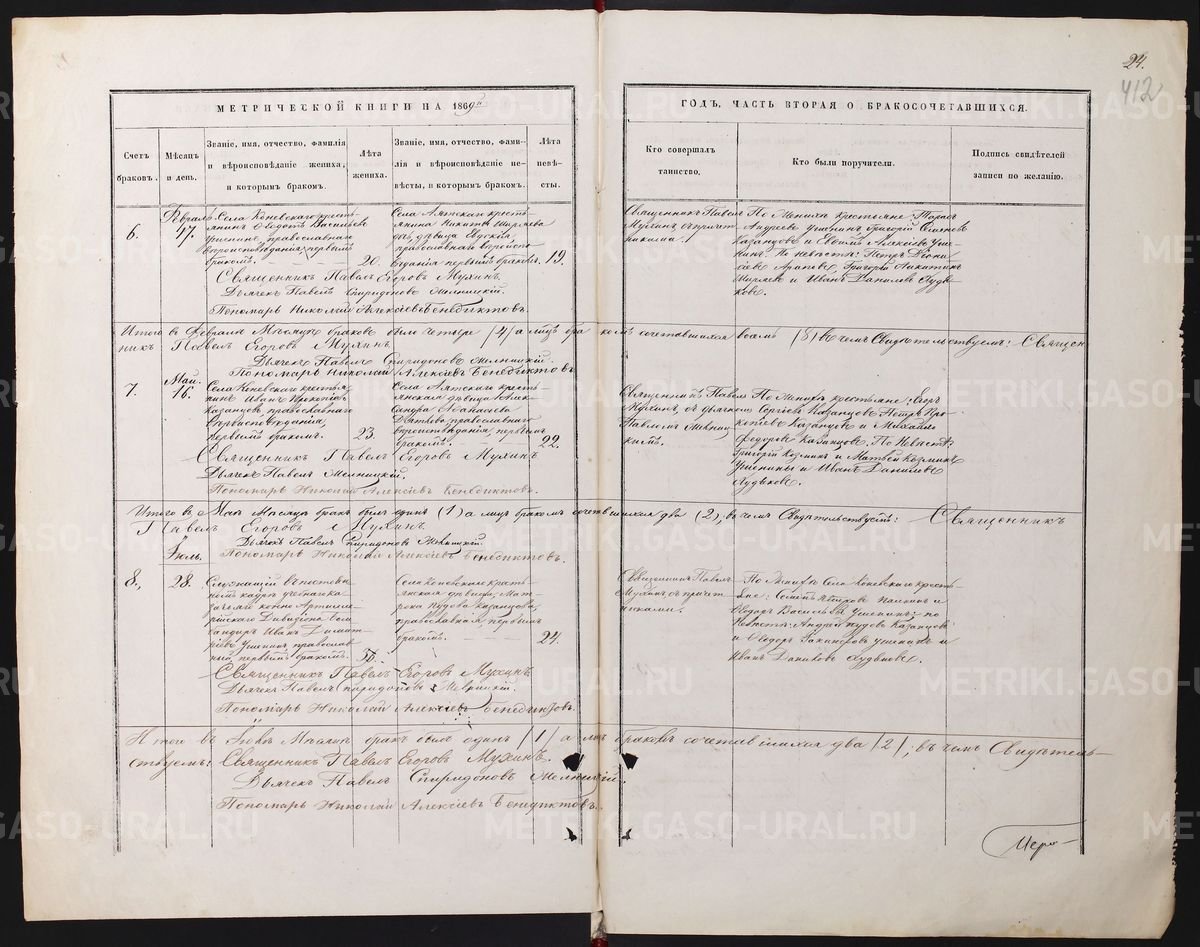 24.
412
МЕТРИЧЕСКОЙ КНИГИ НА 1869й
Счетъ браковъ.
Мѣсяцъ и день.
Званіе, имя, отчество, фамилія и вѣроисповѣданіе жениха, и которымъ бракомъ.
Лѣта жениха.
Званіе, имя, отчество, фамилія и вѣроисповѣданіе невѣсты, и которымъ бракомъ.
Лѣта невѣсты.
ГОДЪ, ЧАСТЬ ВТОРАЯ О БРАКОСОЧЕТАВШИХСЯ.
Кто совершалъ таинство.
Кто были поручители.
Подпись свидѣтелей записи по желанію.
6.
Февраль
17.
Села Коневскаго кресть-
янинъ Ѳедотъ Васильевъ
Ушенинъ, православнаго
вѣроисповѣданія, первымъ
бракомъ.
20.
Села Аятскаго кресть-
янина Никиты Ширяева
дочь дѣвица Евдокія,
православнаго вѣроиспо-
вѣданія первымъ бракомъ.
19.
Священникъ Павелъ
Мухинъ съ причет-
никами.
По женихѣ крестьяне:
Андреевъ Ушенинъ, Григорій Семеновъ
Казанцовъ и Евфимъ Алексѣевъ Уше-
нинъ. По невѣстѣ: Петръ
Григорій Никитинъ
Ширяевъ и Иванъ Даниловъ Худя-
ковъ.
Священникъ Павелъ Егоровъ Мухинъ.
Дьячекъ Павелъ Спиридоновъ Мелницкій.
Пономарь Николай Алексѣевъ Бенедиктовъ.
Итого въ Февралѣ Мѣсяцѣ браковъ было четыре /4/ а лицъ бракомъ сочетавшихся восемь /8/ въ чемъ Свидѣтельствуемъ: Священ-
никъ Павелъ Егоровъ Мухинъ.
Дьячекъ Павелъ Спиридоновъ Мелницкій.
Пономарь Николай Алексѣевъ Бенедиктовъ
7.
Май.
16.
Села Коневскаго крестья-
нинъ Иванъ Прокопіевъ
Казанцовъ, православнаго
вѣроисповѣданія,
первымъ бракомъ.
23.
Села Аятскаго кресть-
янская дѣвица Алек-
сандра Аѳанасьева
Дятлова, православнаго
вѣроисповѣданія, первымъ
бракомъ.
22.
Священникъ Павелъ
Мухинъ, съ дьячкомъ
Павломъ Мелниц-
кимъ.
По женихѣ крестьяне: Егоръ
Сергѣевъ Казанцовъ Петръ Про-
копіевъ Казанцовъ и Михайло
Ѳедоровъ Казанцовъ, По Невѣстѣ:
Григорій Козминъ и Матвѣй Козминъ
Ушенины и Иванъ Даниловъ
Худяковъ.
Священникъ Павелъ Егоровъ Мухинъ
Дьячекъ Павелъ Мелницкій.
Пономарь Николай Алексѣевъ Бенедиктовъ.
Итого въ Маѣ Мѣсяцѣ бракъ былъ одинъ (1) а лицъ бракомъ сочетавшихся два (2), въ чемъ Свидѣтельствуетъ: Священникъ
Павелъ Егоровъ Мухинъ.
Дьячекъ Павелъ Спиридоновъ Мелницкій.
Пономарь Николай Алексѣевъ Бенедиктовъ.
8.,
Іюль.
28.
Служащій
кадра учебнаго
конно Артилле-
рійскаго Дивизіона
Иванъ Димит-
ріевъ Ушенинъ православ-
ный, первымъ бракомъ.
Села Коневскаго кресть-
янская дѣвица, Мат-
рона Пудова Казанцова,
православная, первымъ
бракомъ.
24.
Священникъ Павелъ
Мухинъ съ причет-
никами.
По женихѣ Села Коневскаго кресть-
яне: Семенъ
Ѳедоръ Васильевъ Ушенинъ; по
Невѣстѣ: Андрей Пудовъ Казанцовъ
и Ѳедоръ Ушенинъ и
Иванъ Даниловъ Худяковъ.
Священникъ Павелъ Егоровъ Мухинъ
Дьячекъ Павелъ Спиридоновъ Мелницкій.
Пономарь Николай Алексѣевъ Бенедиктовъ.
Итого въ Мѣсяцѣ бракъ былъ одинъ /1/ а лицъ бракомъ сочетавшихся два /2/, въ чемъ Свидѣтель-
ствуемъ: Священникъ Павелъ Егоровъ Мухинъ.
Дьячекъ Павелъ Спиридоновъ Мелницкій.
Пономарь Николай Алексѣевъ Бенедиктовъ.
METRIKI.GASO-URAL.RU